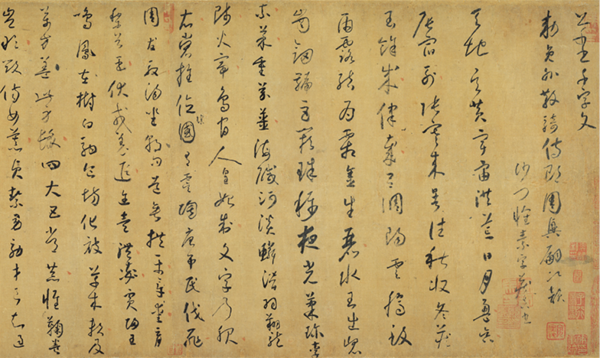 千字文
敕員外散騎侍郎周興嗣次韻
沙門懷素字藏真
天地玄黃宇宙洪荒日月盈昃
辰宿列張寒來暑往秋收冬藏
閏餘成歲律召調陽雲騰致
雨露結為霜金生麗水玉出崑
崗劍號巨闕珠稱夜光菓珍李
柰菜重芥薑海鹹河淡鱗潛羽翔龍
師火帝鳥官人皇始制文字乃服
衣裳推位讓國有虞陶唐弔民伐罪
周發殷湯坐朝問道垂拱平章愛育
黎首臣伏戎羌遐邇壹體率賓歸王
鳴鳳在樹白駒食場化被草木賴及
萬方蓋此身髮四大五常恭惟鞠養
豈敢毀傷女慕貞絜男效才良知過